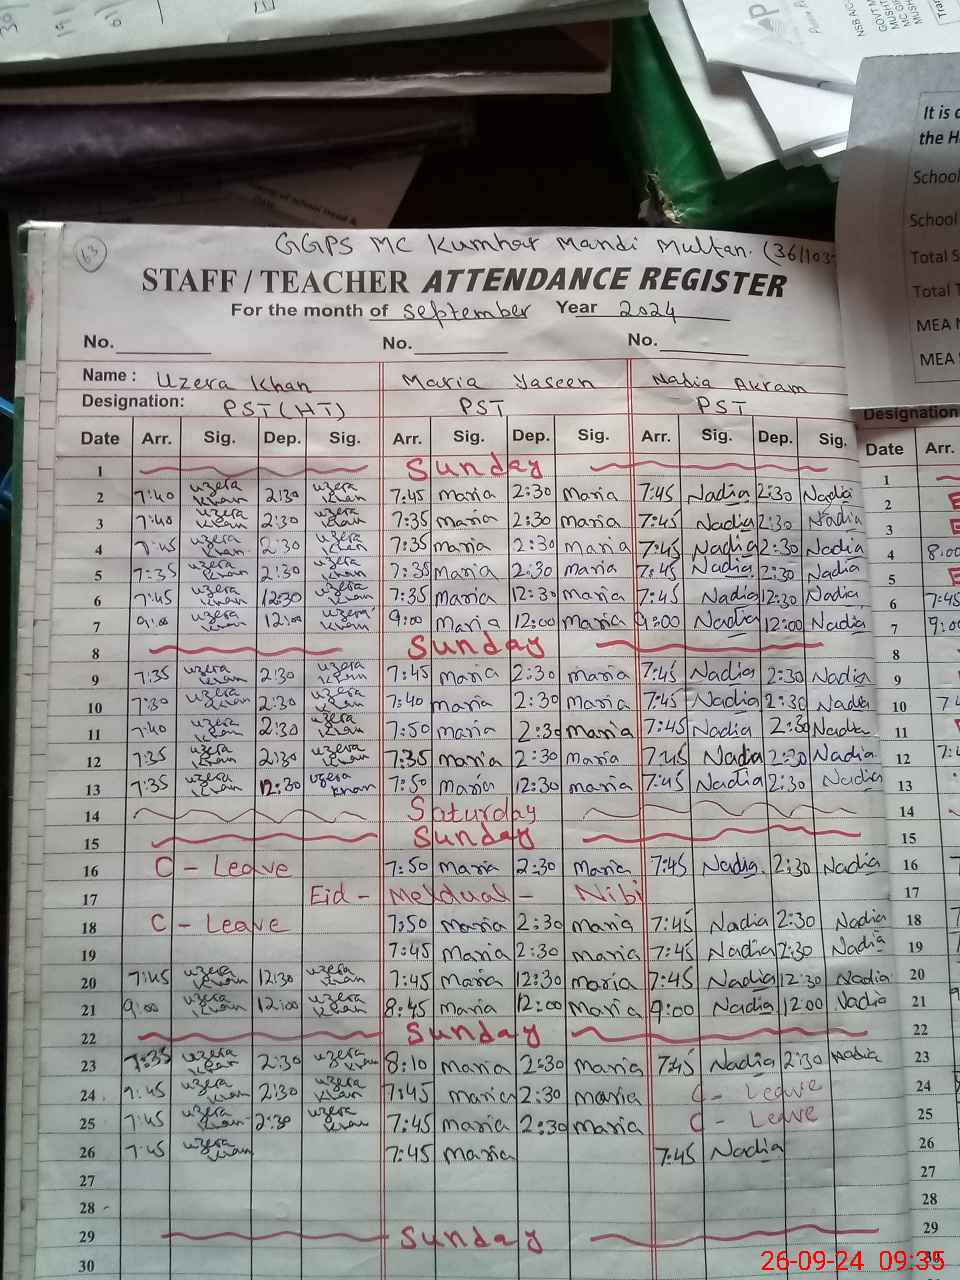 It is
the H
School
School
Total S
Total T
MEA N
MEA
63
GGPS MC Kumhar Mandi Multan. (361103
STAFF / TEACHER ATTENDANCE REGISTER
For the month of September Year 2024
No. No. No.
Name : Uzera Khan Maria Yaseen Nadia Akram
Designation: PST (HT) PST PST Designation
Date Arr. Sig. Dep. Sig. Arr. Sig. Dep. Sig. Arr. Sig. Dep. Sig. Date Arr.
1 Sunday 1
2 7:40 uzera khan 2:30 uzera khan 7:45 maria 2:30 maria 7:45 Nadia 2:30 Nadia 2
3 7:40 uzera khan 2:30 uzera khan 7:35 maria 2:30 maria 7:45 Nadia 2:30 Nadia 3
4 7:45 uzera khan 2:30 uzera khan 7:35 maria 2:30 maria 7:45 Nadia 2:30 Nadia 4 8:00
5 7:35 uzera khan 2:30 uzera khan 7:35 maria 2:30 maria 7:45 Nadia 2:30 Nadia 5
6 7:45 uzera khan 12:30 uzera khan 7:35 maria 12:30 maria 7:45 Nadia 12:30 Nadia 6 7:45
7 9:00 uzera khan 12:00 uzera khan 9:00 maria 12:00 maria 9:00 Nadia 12:00 Nadia 7 9:00
8 Sunday 8
9 7:35 uzera khan 2:30 uzera khan 7:45 maria 2:30 maria 7:45 Nadia 2:30 Nadia 9
10 7:30 uzera khan 2:30 uzera khan 7:40 maria 2:30 maria 7:45 Nadia 2:30 Nadia 10
11 7:40 uzera khan 2:30 uzera khan 7:50 maria 2:30 maria 7:45 Nadia 2:30 Nadia 11
12 7:35 uzera khan 2:30 uzera khan 7:35 maria 2:30 maria 7:45 Nadia 2:30 Nadia 12
13 7:35 uzera khan 12:30 uzera khan 7:50 maria 12:30 maria 7:45 Nadia 2:30 Nadia 13
14 Saturday 14
15 Sunday 15
16 C - Leave 7:50 maria 2:30 maria 7:45 Nadia 2:30 Nadia 16
17 Eid - Meldual - Nibi 17
18 C - Leave 7:50 maria 2:30 maria 7:45 Nadia 2:30 Nadia 18
19 7:45 maria 2:30 maria 7:45 Nadia 2:30 Nadia 19
20 7:45 uzera khan 12:30 uzera khan 7:45 maria 12:30 maria 7:45 Nadia 12:30 Nadia 20
21 9:00 uzera khan 12:00 uzera khan 8:45 maria 12:00 maria 9:00 Nadia 12:00 Nadia 21
22 Sunday 22
23 7:35 uzera khan 2:30 uzera khan 8:10 maria 2:30 maria 7:45 Nadia 2:30 Nadia 23
24 7:45 uzera khan 2:30 uzera khan 7:45 maria 2:30 maria C - Leave 24
25 7:45 uzera khan 2:30 uzera khan 7:45 maria 2:30 maria C - Leave 25
26 7:45 uzera khan 7:45 maria 7:45 Nadia 26
27 27
28 28
29 Sunday 29
30 30
26-09-24 09:35